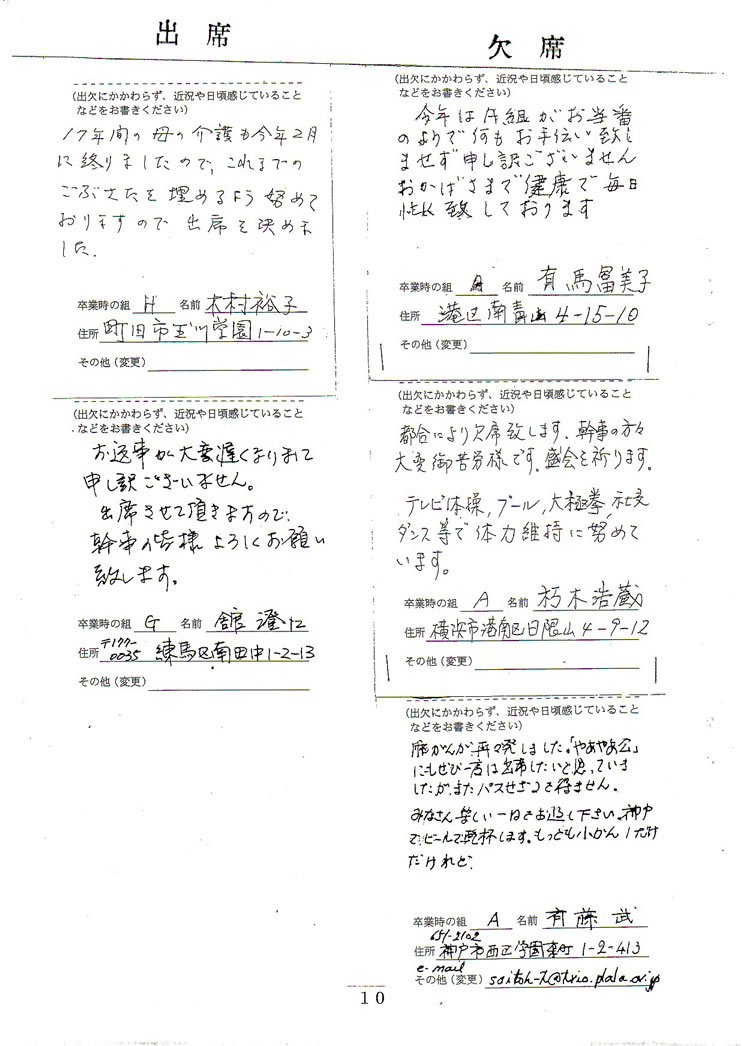 出席
(出欠にかかわらず、近況や日頃感じていること
などをお書きください)
17年間の母の介護も今年2月
に終りましたので、これまでの
ごぶさたを埋めるよう努めて
おりますので出席を決めま
した.
卒業時の組 H 名前 木村裕子
住所 町田市玉川学園1-10-3
その他(変更)
(出欠にかかわらず、近況や日頃感じていること
などをお書きください)
お返事が大変遅くなりまして
申し訳ございません。
出席させて頂きますので、
幹事の皆様よろしくお願い
致します。
卒業時の組 G 名前 舘 澄江
住所 〒177-0035 練馬区南田中1-2-13
その他(変更)
欠席
(出欠にかかわらず、近況や日頃感じていること
などをお書きください)
今年はA組がお当番
のようで何もお手伝い致し
ませず申し訳ございません
おかげさまで健康で毎日
忙しく致しております
卒業時の組 A 名前 有馬冨美子
住所 港区南青山4-15-10
その他(変更)
(出欠にかかわらず、近況や日頃感じていること
などをお書きください)
都合により欠席致します、幹事の方々
大変御苦労様です。盛会を祈ります。
テレビ体操,プール,太極拳,社交
ダンス等で体力維持に努めて
います。
卒業時の組 A 名前 朽木浩蔵
住所 横浜市港南区日限山4-9-12
その他(変更)
(出欠にかかわらず、近況や日頃感じていること
などをお書きください)
がんが再々発しました。「やあやあ会」
にもぜひ一度は出席したいと思っていま
したが、またパスせざるを得ません。
みなさん楽しい一日をお過し下さい。神戸
でビールで乾杯します。もっとも小かん1だけ
だけれど.
卒業時の組 A 名前 斉藤 武
651-2102
住所 神戸市西区学園東町1-2-413
e-mail
その他(変更)
10